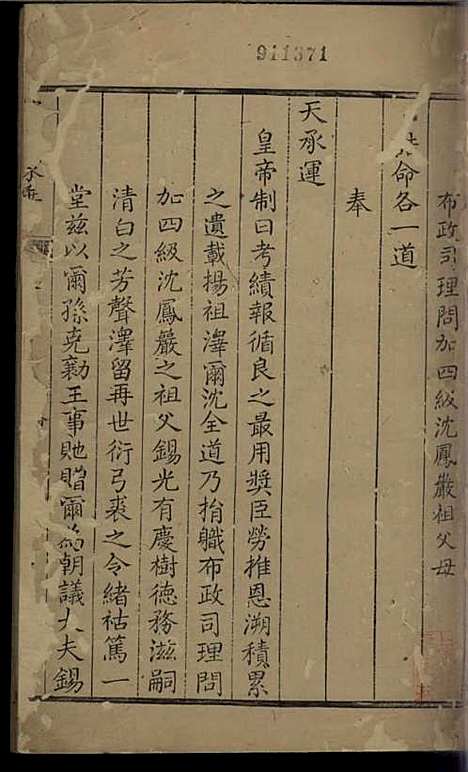 911371
布政司理問加四級沈鳳嚴祖父母
命各一道
奉
天承運
皇帝制曰考績報循良之最用獎臣勞推恩溯積累
之遺載揚祖澤爾沈全道乃捐職布政司理問
加四級沈鳳嚴之祖父錫光有慶樹德務滋嗣
清白之芳聲澤留再世衍弓裘之令緒祜篤一
堂茲以爾孫克襄王事貤贈爾為朝議大夫錫